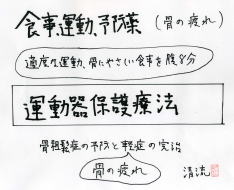 食事、運動、予防薬（骨の疲れ）
適度な運動、骨にやさしい食事を腹8分
運動器保護療法
骨粗鬆症の予防と軽症の完治
骨の疲れ
清流